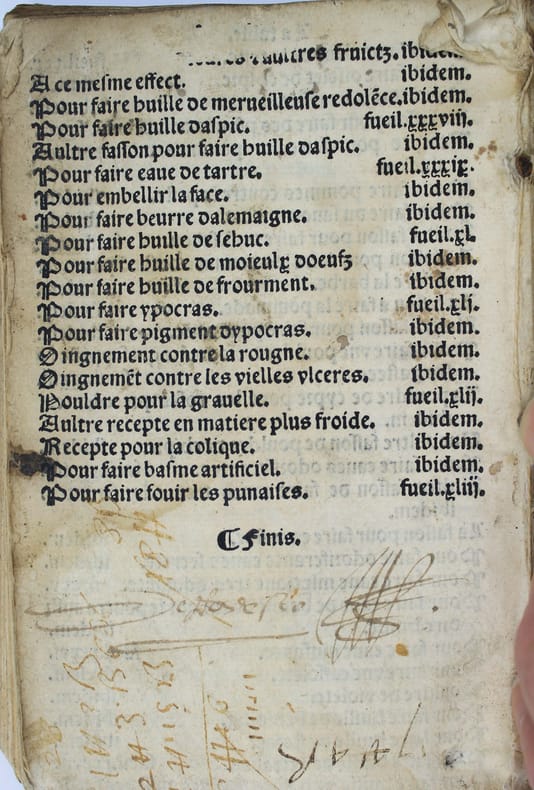 aultres fruictz. ibidem.
A ce mesme effect. ibidem.
Pour faire huille de merueilleuse redolēce. ibidem.
Pour faire huille daspic. fueil.xxxviij.
Aultre fasson pour faire huille daspic. ibidem.
Pour faire eaue de tartre. fueil.xxxix.
Pour embellir la face. ibidem.
Pour faire beurre dalemaigne. ibidem.
Pour faire huille de sebuc. fueil.xl.
Pour faire huille de moieulx doeufz ibidem.
Pour faire huille de frourment. ibidem.
Pour faire ypocras. fueil.xlj.
Pour faire pigment dypocras. ibidem.
Oingnement contre la rougne. ibidem.
Oingnemēt contre les vielles vlceres. ibidem.
Pouldre pour la grauelle. fueil.xlij.
Aultre recepte en matiere plus froide. ibidem.
Recepte pour la colique. ibidem.
Pour faire basme artificiel. ibidem.
Pour faire fouir les punaises. fueil.xliij.
⸿ Finis.